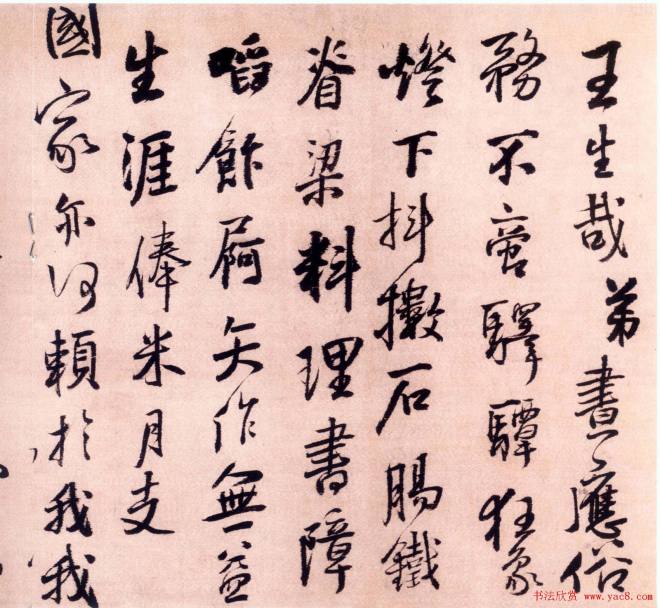 王生哉弟晝應俗
務不啻驛驔狂象
燈下抖擻石腸鐵
脊梁料理書障
啗飰屙矢作無益
生涯俸米月支
國家亦何賴於我我
书法欣赏 www.yac8.com